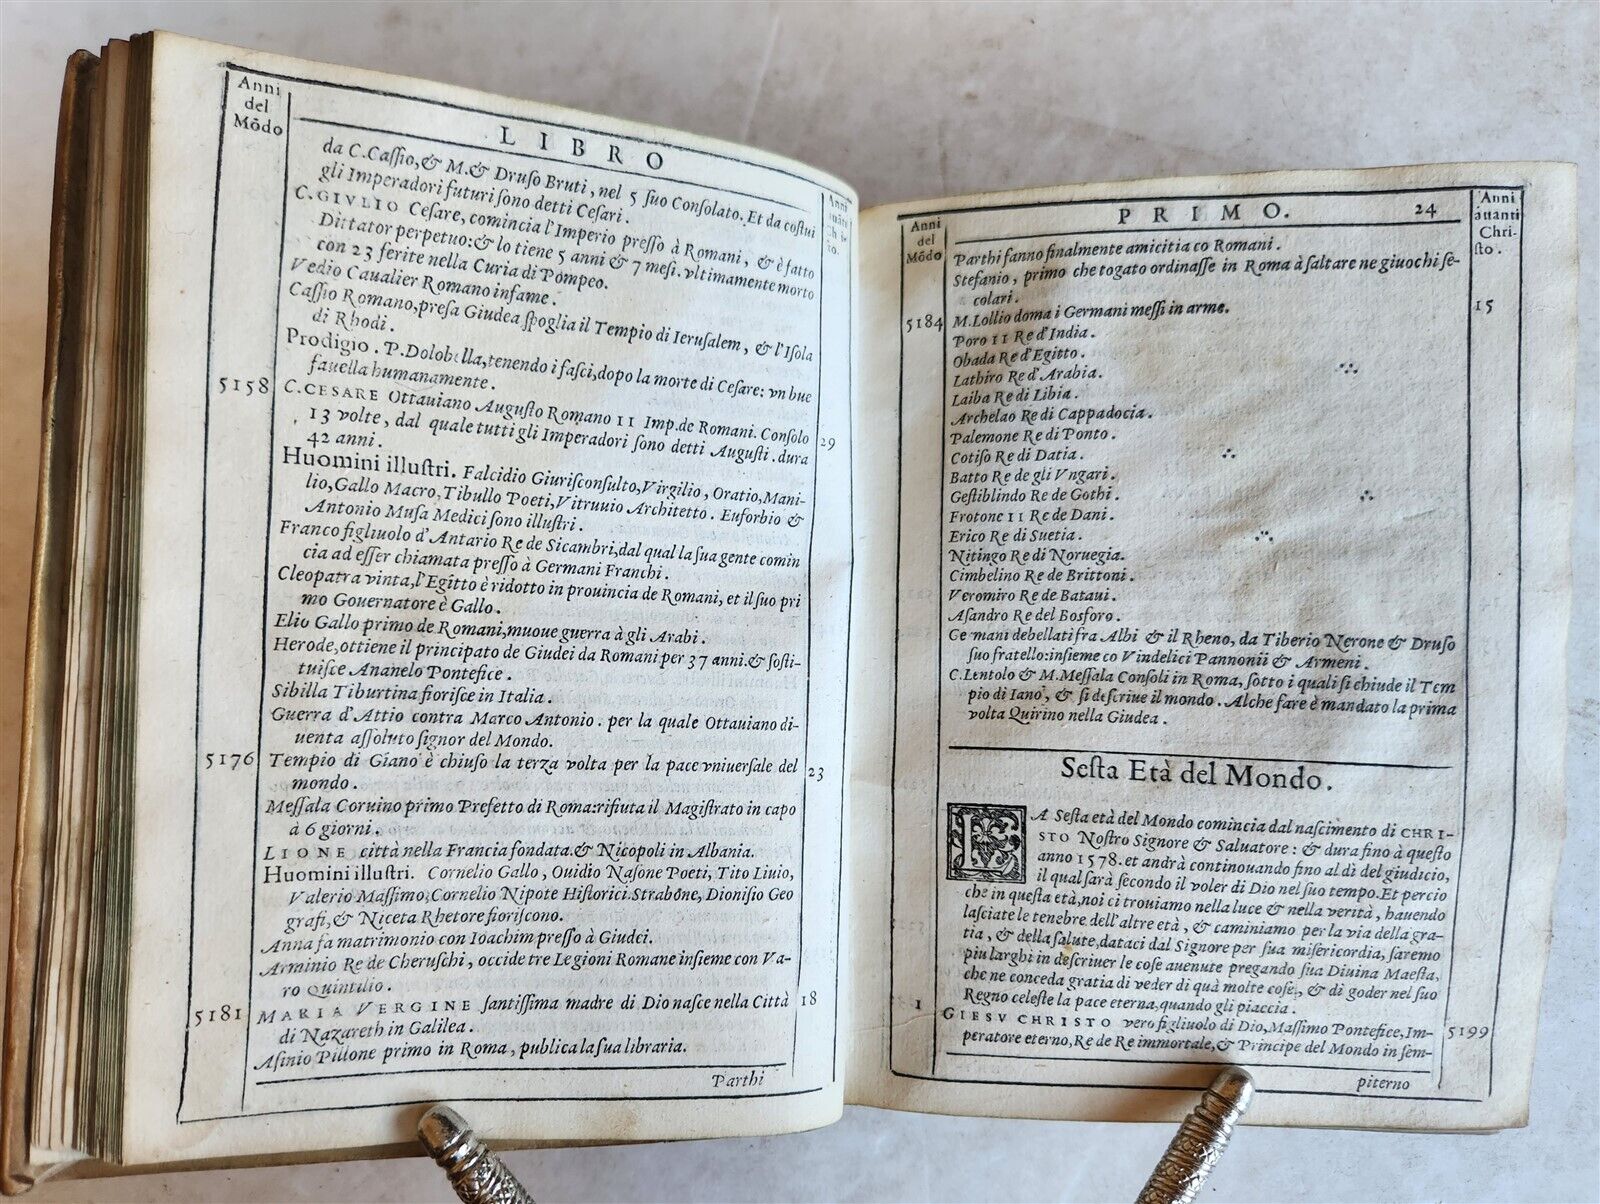 Anni
del
Mõdo
LIBRO
Anni
Chri
sto.
da C. Caſſio, & M. & Druſo Bruti, nel 5 ſuo Conſolato. Et da coſtui
gli Imperadori futuri ſono detti Ceſari.
C. GIVLIO Ceſare, comincia l'Imperio preſſo à Romani, & è fatto
Dittator perpetuo: & lo tiene 5 anni & 7 meſi. vltimamente morto
con 23 ferite nella Curia di Pompeo.
Vedio Caualier Romano infame.
Caſſio Romano, preſa Giudea ſpoglia il Tempio di Ieruſalem, & l'Iſola
di Rhodi.
Prodigio. P. Dolobella, tenendo i faſci, dopo la morte di Ceſare: vn bue
fauella humanamente.
5158 C. CESARE Ottauiano Auguſto Romano II Imp. de Romani. Conſolo
13 volte, dal quale tutti gli Imperadori ſono detti Auguſti. dura 29
42 anni.
Huomini illuſtri. Falcidio Giuriſconſulto, Virgilio, Oratio, Mani-
lio, Gallo Macro, Tibullo Poeti, Vitruuio Architetto. Euforbio &
Antonio Muſa Medici ſono illuſtri.
Franco figliuolo d'Antario Re de Sicambri, dal qual la ſua gente comin
cia ad eſſer chiamata preſſo à Germani Franchi.
Cleopatra vinta, l'Egitto è ridotto in prouincia de Romani, et il ſuo pri
mo Gouernatore è Gallo.
Elio Gallo primo de Romani, muoue guerra à gli Arabi.
Herode, ottiene il principato de Giudei da Romani per 37 anni. & ſoſti-
tuiſce Ananelo Pontefice.
Sibilla Tiburtina fioriſce in Italia.
Guerra d'Attio contra Marco Antonio. per la quale Ottauiano di-
uenta aſſoluto ſignor del Mondo.
5176 Tempio di Giano è chiuſo la terza volta per la pace vniuerſale del 23
mondo.
Meſſala Coruino primo Prefetto di Roma: rifiuta il Magiſtrato in capo
à 6 giorni.
LIONE città nella Francia fondata. & Nicopoli in Albania.
Huomini illuſtri. Cornelio Gallo, Ouidio Naſone Poeti, Tito Liuio,
Valerio Maſſimo, Cornelio Nipote Hiſtorici. Strabōne, Dioniſio Geo
grafi, & Niceta Rhetore fioriſcono.
Anna fa matrimonio con Ioachim preſſo à Giudei.
Arminio Re de Cheruſchi, occide tre Legioni Romane inſieme con Va-
ro Quintilio.
5181 MARIA VERGINE ſantiſſima madre di Dio naſce nella Città 18
di Nazareth in Galilea.
Aſinio Pillone primo in Roma, publica la ſua libraria.
Parthi
Anni
del
Mõdo
PRIMO. 24
Anni
auanti
Chri-
ſto.
Parthi fanno finalmente amicitia co Romani.
Stefanio, primo che togato ordinaſſe in Roma à ſaltare ne giuochi ſe-
colari.
5184 M. Lollio doma i Germani meſſi in arme. 15
Poro II Re d'India.
Obada Re d'Egitto.
Lathiro Re d'Arabia.
Laiba Re di Libia.
Archelao Re di Cappadocia.
Palemone Re di Ponto.
Cotiſo Re di Datia.
Batto Re de gli Vngari.
Geſtiblindo Re de Gothi.
Frotone II Re de Dani.
Erico Re di Suetia.
Nitingo Re di Noruegia.
Cimbelino Re de Brittoni.
Veromiro Re de Bataui.
Aſandro Re del Boſforo.
Ge mani debellati fra Albi & il Rheno, da Tiberio Nerone & Druſo
ſuo fratello: inſieme co Vindelici Pannonii & Armeni.
C. Lentolo & M. Meſſala Conſoli in Roma, ſotto i quali ſi chiude il Tem
pio di Iano, & ſi deſcriue il mondo. Al che fare è mandato la prima
volta Quirino nella Giudea.
Seſta Età del Mondo.
LA Seſta età del Mondo comincia dal naſcimento di CHRI-
STO Noſtro Signore & Saluatore: & dura fino à queſto
anno 1578. et andrà continouando fino al dì del giudicio,
il qual ſarà ſecondo il voler di Dio nel ſuo tempo. Et percio
che in queſta età, noi ci trouiamo nella luce & nella verità, hauendo
laſciate le tenebre dell'altre età, & caminiamo per la via della gra-
tia, & della ſalute, dataci dal Signore per ſua miſericordia, ſaremo
piu larghi in deſcriuer le coſe auenute pregando ſua Diuina Maeſta,
che ne conceda gratia di veder di quà molte coſe, & di goder nel ſuo
Regno celeſte la pace eterna, quando gli piaccia.
1 GIESV CHRISTO vero figliuolo di Dio, Maſſimo Pontefice, Im- 5199
peratore eterno, Re de Re immortale, & Principe del Mondo in ſem-
piterno